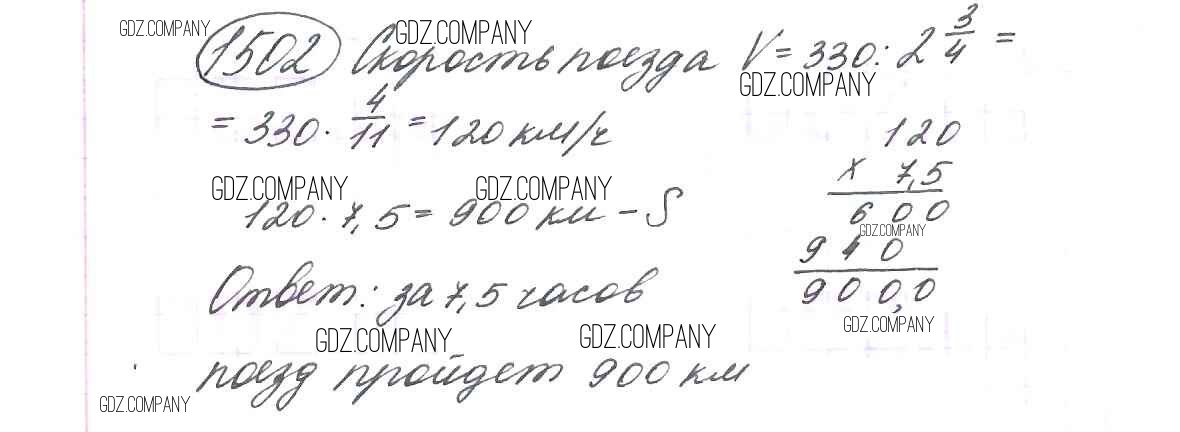 GDZ.COMPANY GDZ.COMPANY
1502 Скорость поезда V = 330 : 2 3/4 =
GDZ.COMPANY
= 330 · 4/11 = 120 км/ч
120
x 7,5
GDZ.COMPANY GDZ.COMPANY
120 · 7,5 = 900 км – S
600
GDZ.COMPANY
940
900,0
Ответ: за 7,5 часов
GDZ.COMPANY GDZ.COMPANY GDZ.COMPANY
поезд пройдет 900 км
GDZ.COMPANY